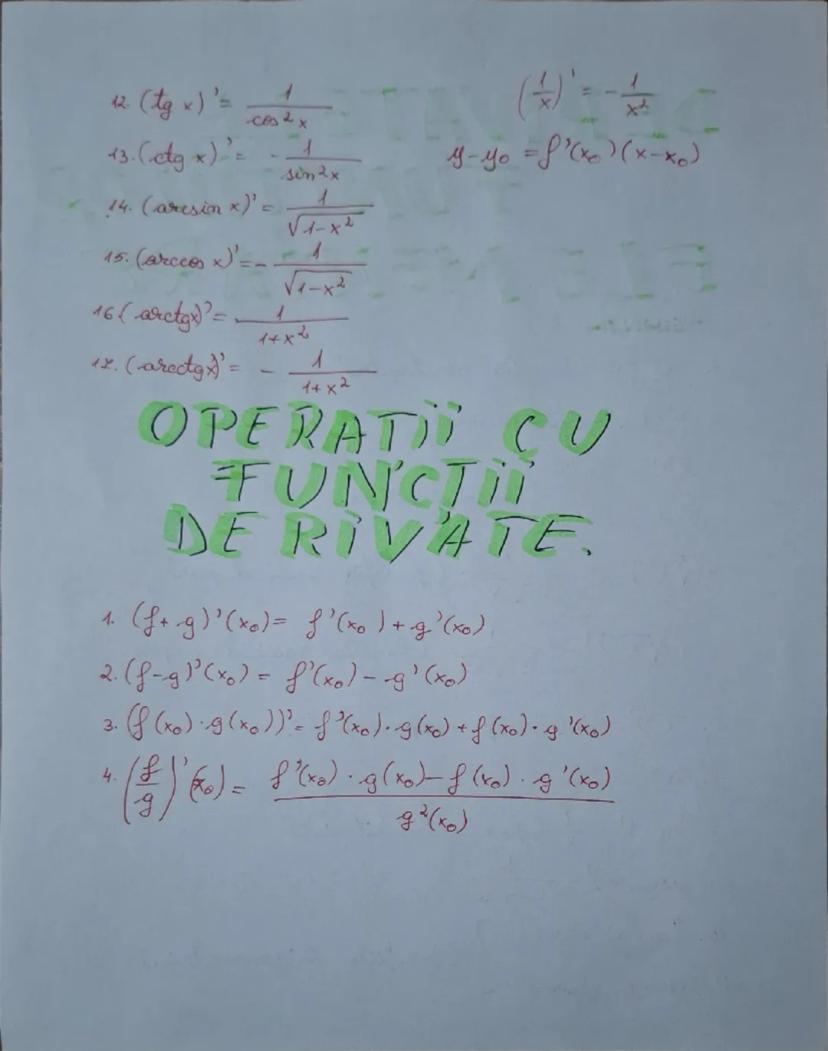 12. (tg x)' = 1/cos²x
(1/x)' = -1/x²
13. (ctg x)' = -1/sin²x
y-y₀ = f'(x₀)(x-x₀)
14. (arcsin x)' = 1/√(1-x²)
15. (arccos x)' = -1/√(1-x²)
16. (arctgx)' = 1/(1+x²)
17. (arcctgx)' = -1/(1+x²)
OPERAȚII CU
FUNCȚII
DERIVATE.
1. (f+g)'(x₀) = f'(x₀)+g'(x₀)
2. (f-g)'(x₀) = f'(x₀)-g'(x₀)
3. (f(x₀)·g(x₀))' = f'(x₀)·g(x₀)+f(x₀)·g'(x₀)
4. (f/g)'(x₀) = (f'(x₀)·g(x₀)-f(x₀)·g'(x₀))/g²(x₀)